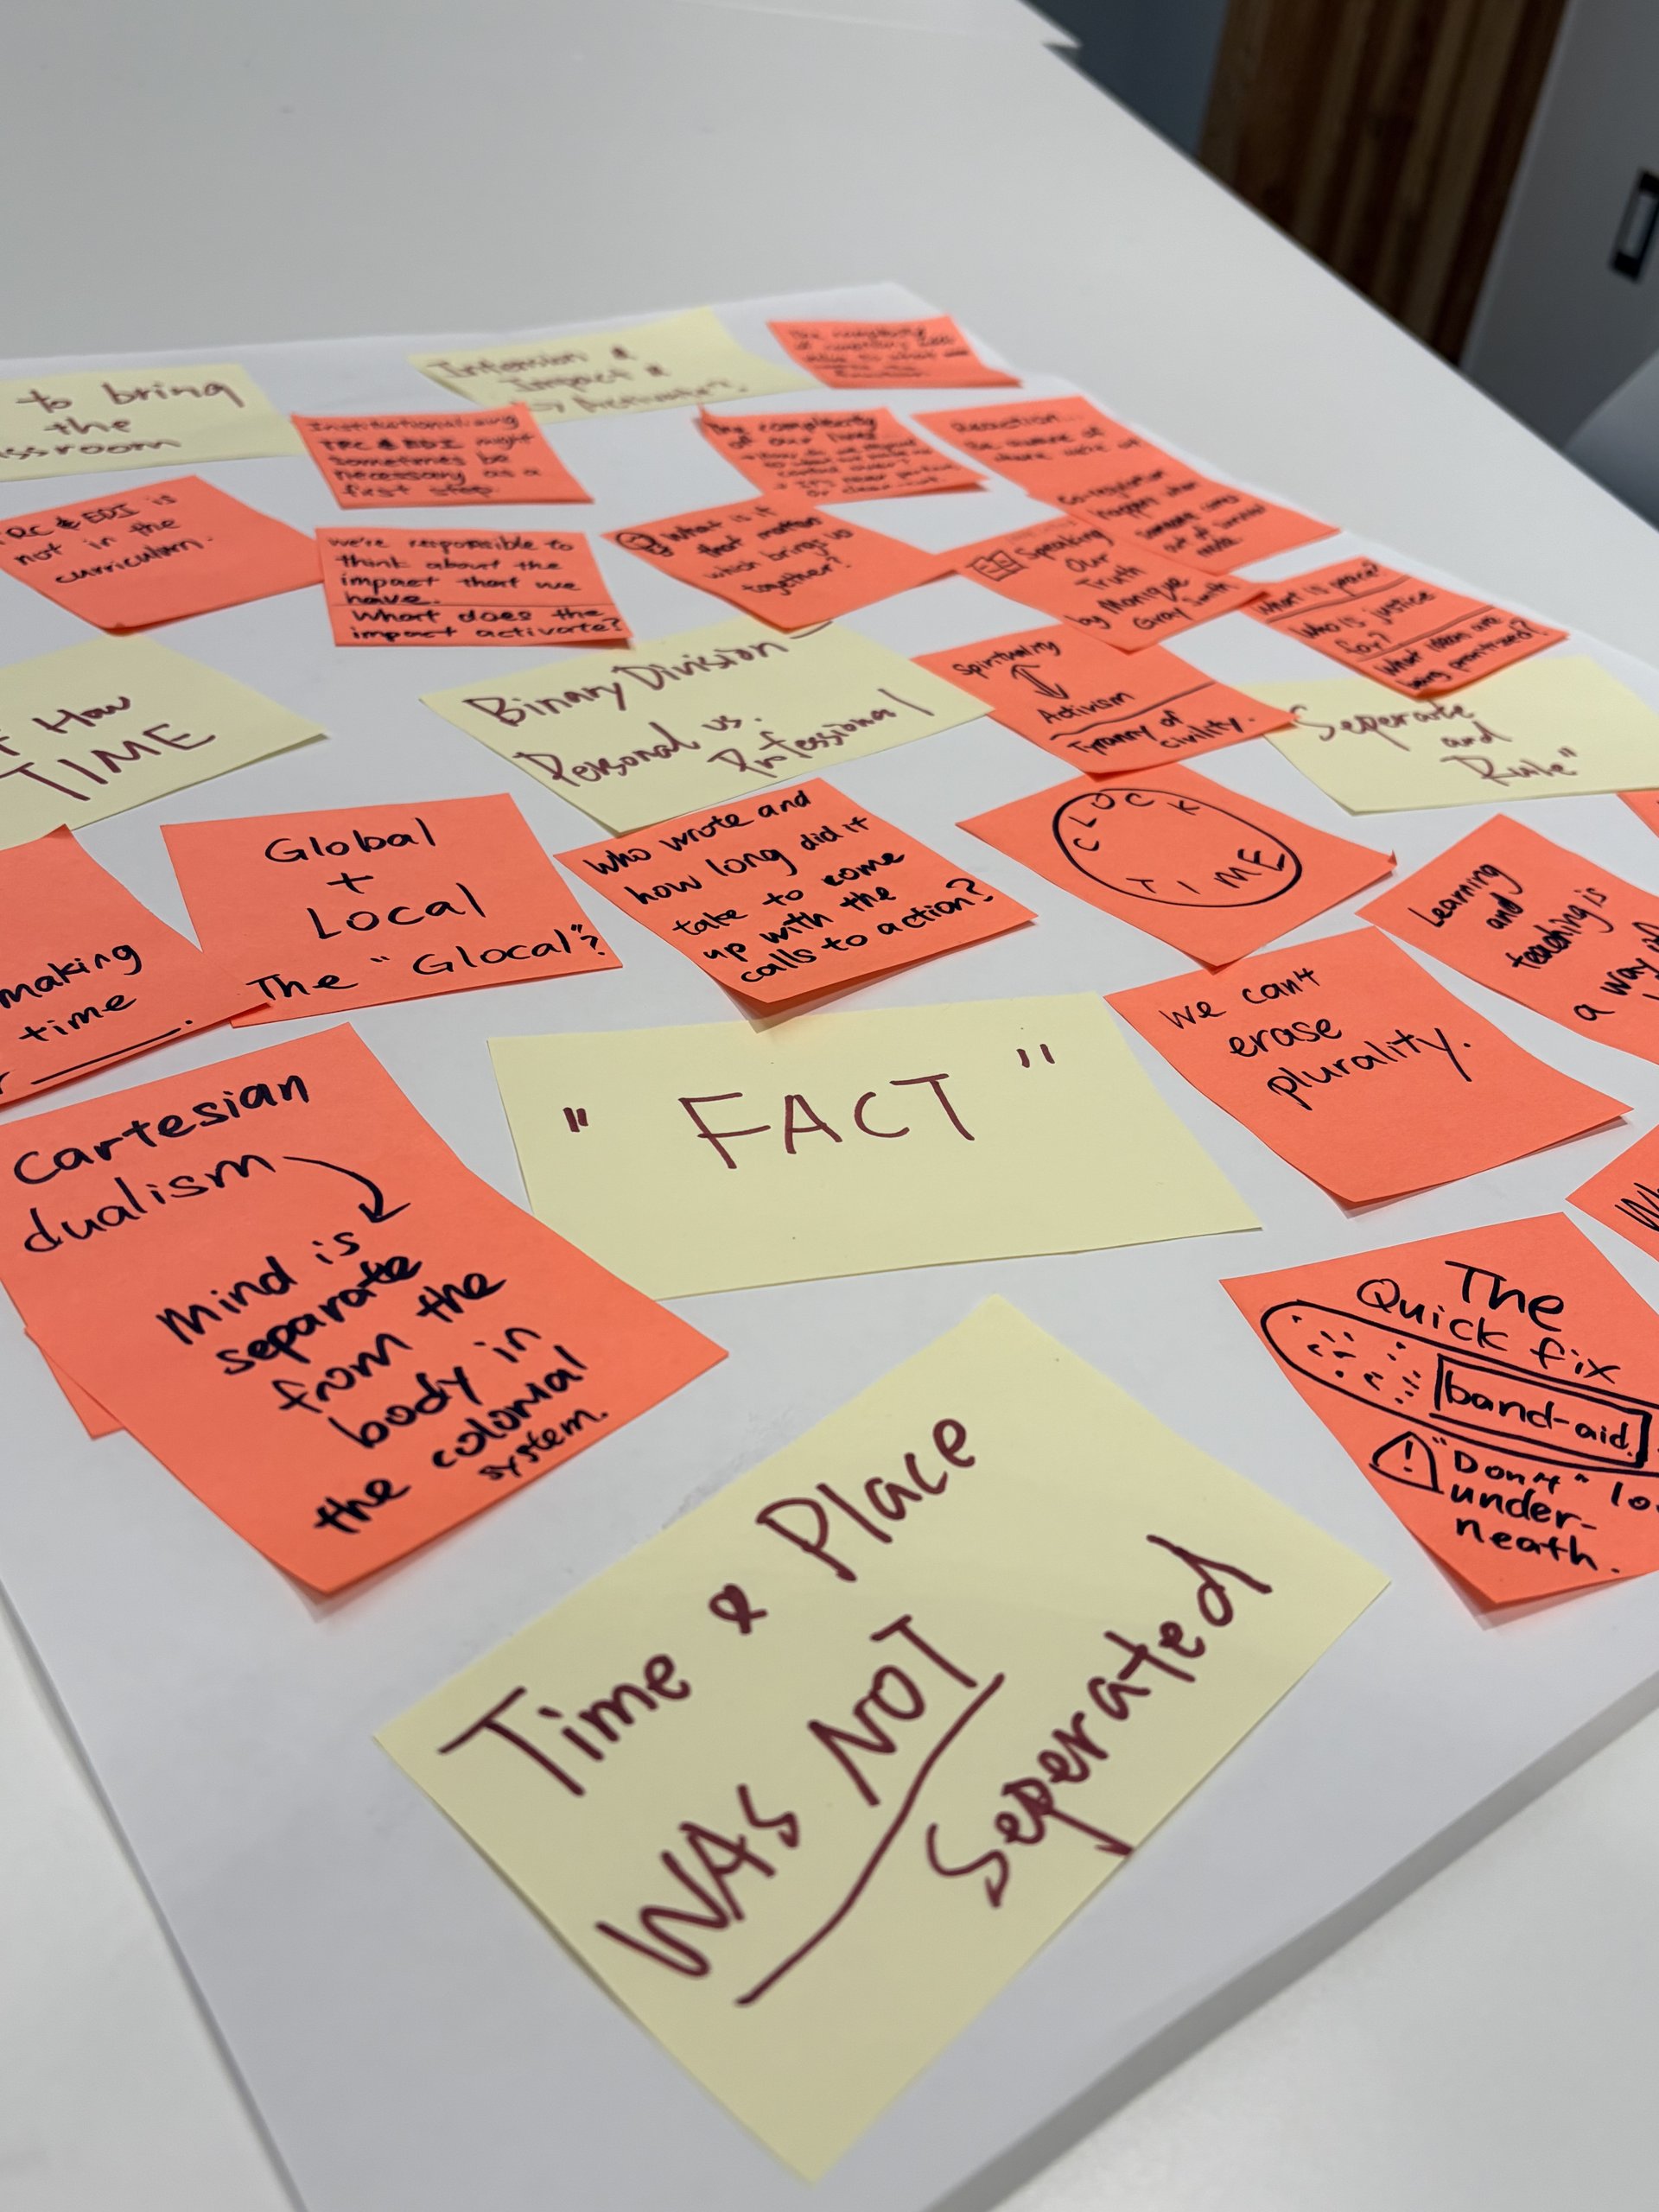 to bring
the
Intension &
Impact &
Activate?
Institutionalizing
TRC & EDI might
sometimes be
necessary as a
first step.
The complexity
of our lives...
Reaction...
Be aware of
where we're at
& EDI is
not in the
curriculum.
We're responsible to
think about the
impact that we
have.
What does the
impact activate?
What is it
that matters
which brings us
together?
Speaking
Our
Truth
by Monique
Gray Smith
Co-regulation
happens when
someone comes
out of survival
mode.
What is peace?
Who is justice
for?
What ideas are
being prioritized?
How
TIME
Binary Division
Personal vs.
Professional
Spirituality
Activism
Tyranny of
civility.
Seperate
and
Rule"
making
time
Global
+
Local
The "Glocal"?
Who wrote and
how long did it
take to come
up with the
calls to action?
CLOCK
TIME
Learning
and
teaching is
a way
We can't
erase
plurality.
Cartesian
dualism
Mind is
separate
from the
body in
the colonial
system.
" FACT "
The
Quick fix
band-aid.
"Don't"
under-
neath.
Time & Place
WAS NOT
Seperated